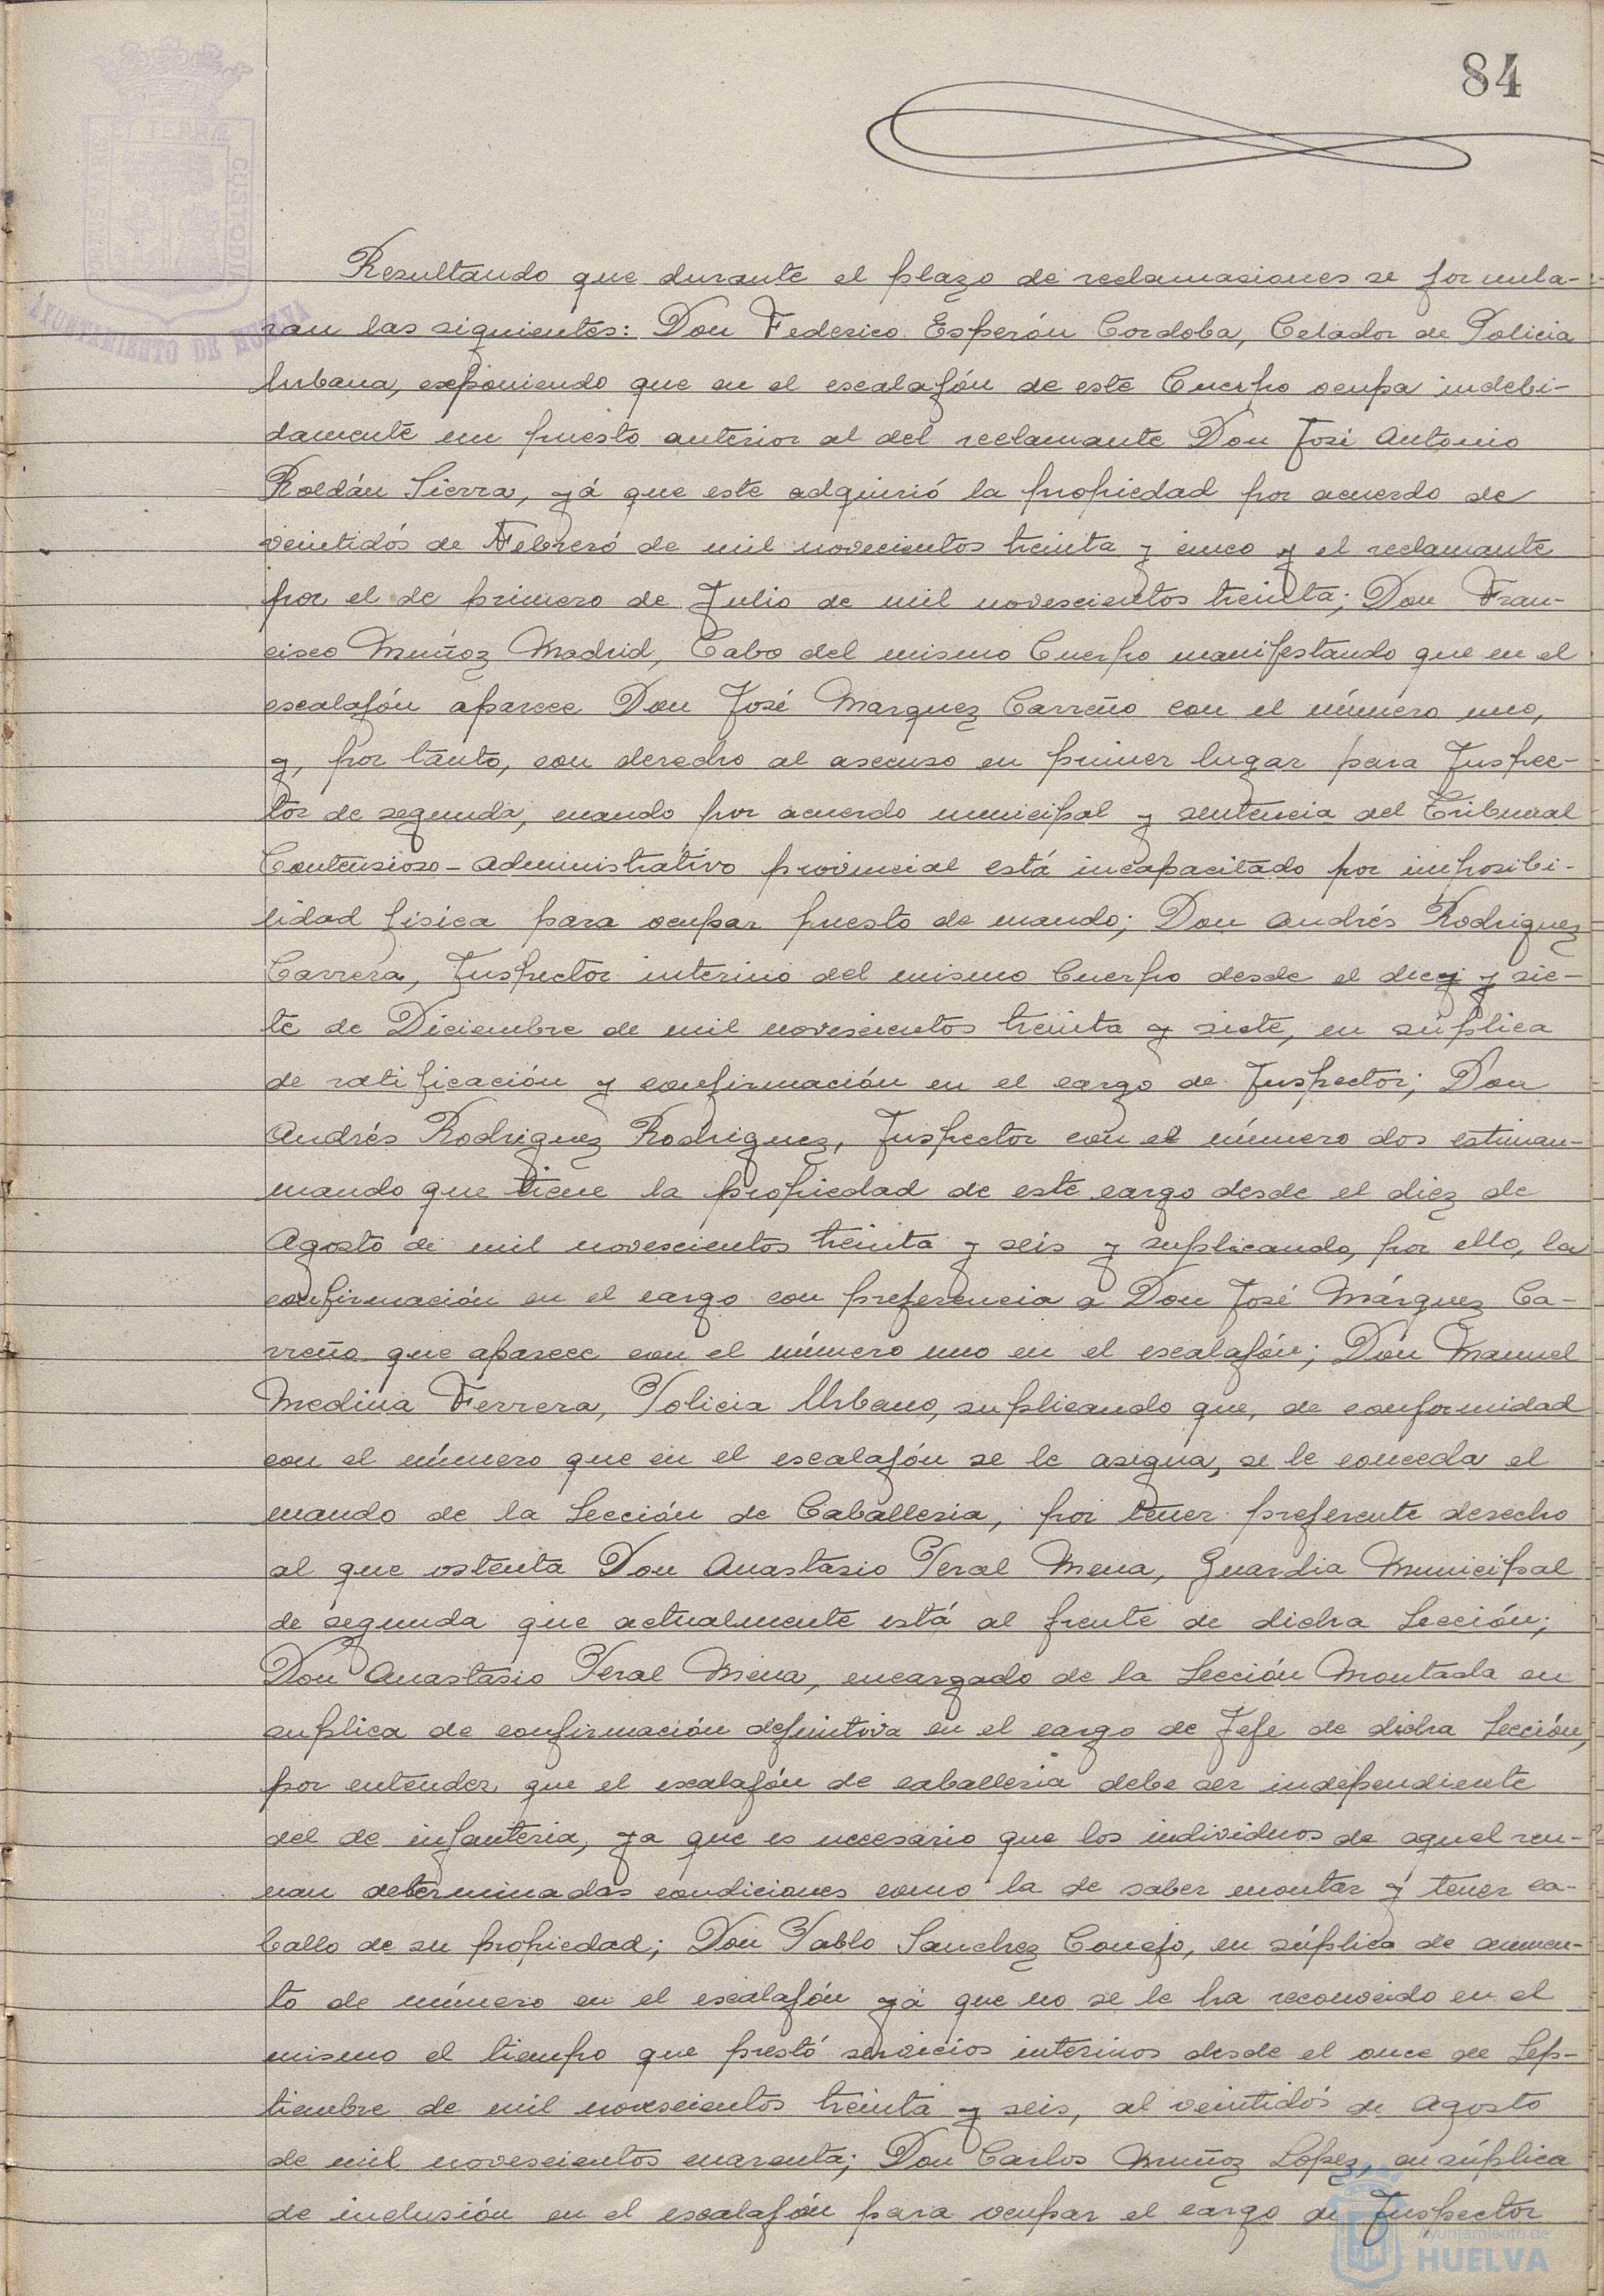 84
PORTUS MARIS
ET TERRÆ
CUSTODIA
AYUNTAMIENTO DE HUELVA
Resultando que durante el plazo de reclamasiones se formula-
ran las siguientes: Don Federico Esperón Cordoba, Celador de Policia
Urbana, exponiendo que en el escalafón de este Cuerpo ocupa indebi-
damente un puesto anterior al del reclamante Don José Antonio
Roldán Sierra, yá que este adquirió la propiedad por acuerdo de
veintidós de Febreró de mil novecientos treinta y cinco y el reclamante
por el de primero de Julio de mil novescientos treinta; Don Fran-
cisco Muñoz Madrid, Cabo del mismo Cuerpo manifestando que en el
escalafón aparece Don José Marquez Carreño con el número uno,
y, por tanto, con derecho al ascenso en primer lugar para Inspec-
tor de segunda, cuando por acuerdo municipal y sentencia del Tribunal
Contensioso-Administrativo provincial está incapacitado por imposibi-
lidad fisica para ocupar puesto de mando; Don Andrés Rodriguez
Carrera, Inspector interino del mismo Cuerpo desde el diez y sie-
te de Diciembre de mil novescientos treinta y siete, en súplica
de ratificación y confirmación en el cargo de Inspector; Don
Andrés Rodriguez Rodriguez, Inspector con el número dos estiman-
mando que tiene la propiedad de este cargo desde el diez de
Agosto de mil novescientos treinta y seis y suplicando, por ello, la
confirmación en el cargo con preferencia a Don José Márquez Ca-
rreño que aparece con el número uno en el escalafón; Don Manuel
Medina Ferrera, Policia Urbano, suplicando que, de conformidad
con el número que en el escalafón se le asigna, se le conceda el
mando de la Sección de Caballeria, por tener preferente derecho
al que ostenta Don Anastasio Peral Mena, Guardia Municipal
de segunda que actualmente está al frente de dicha Sección;
Don Anastasio Peral Mena, encargado de la Sección Montada en
suplica de confirmación definitiva en el cargo de Jefe de dicha Sección,
por entender que el escalafón de caballeria debe ser independiente
del de infanteria, ya que es necesario que los individuos de aquel reu-
nan determinadas condiciones como la de saber montar y tener ca-
ballo de su propiedad; Don Pablo Sanchez Conejo, en súplica de aumen-
to de número en el escalafón yá que no se le ha reconocido en el
mismo el tiempo que prestó servicios interinos desde el once de Sep-
tiembre de mil novescientos treinta y seis, al veintidós de Agosto
de mil novescientos cuarenta; Don Carlos Muñoz Lopez, en súplica
de inclusión en el escalafón para ocupar el cargo de Inspector
Ayuntamiento de
HUELVA